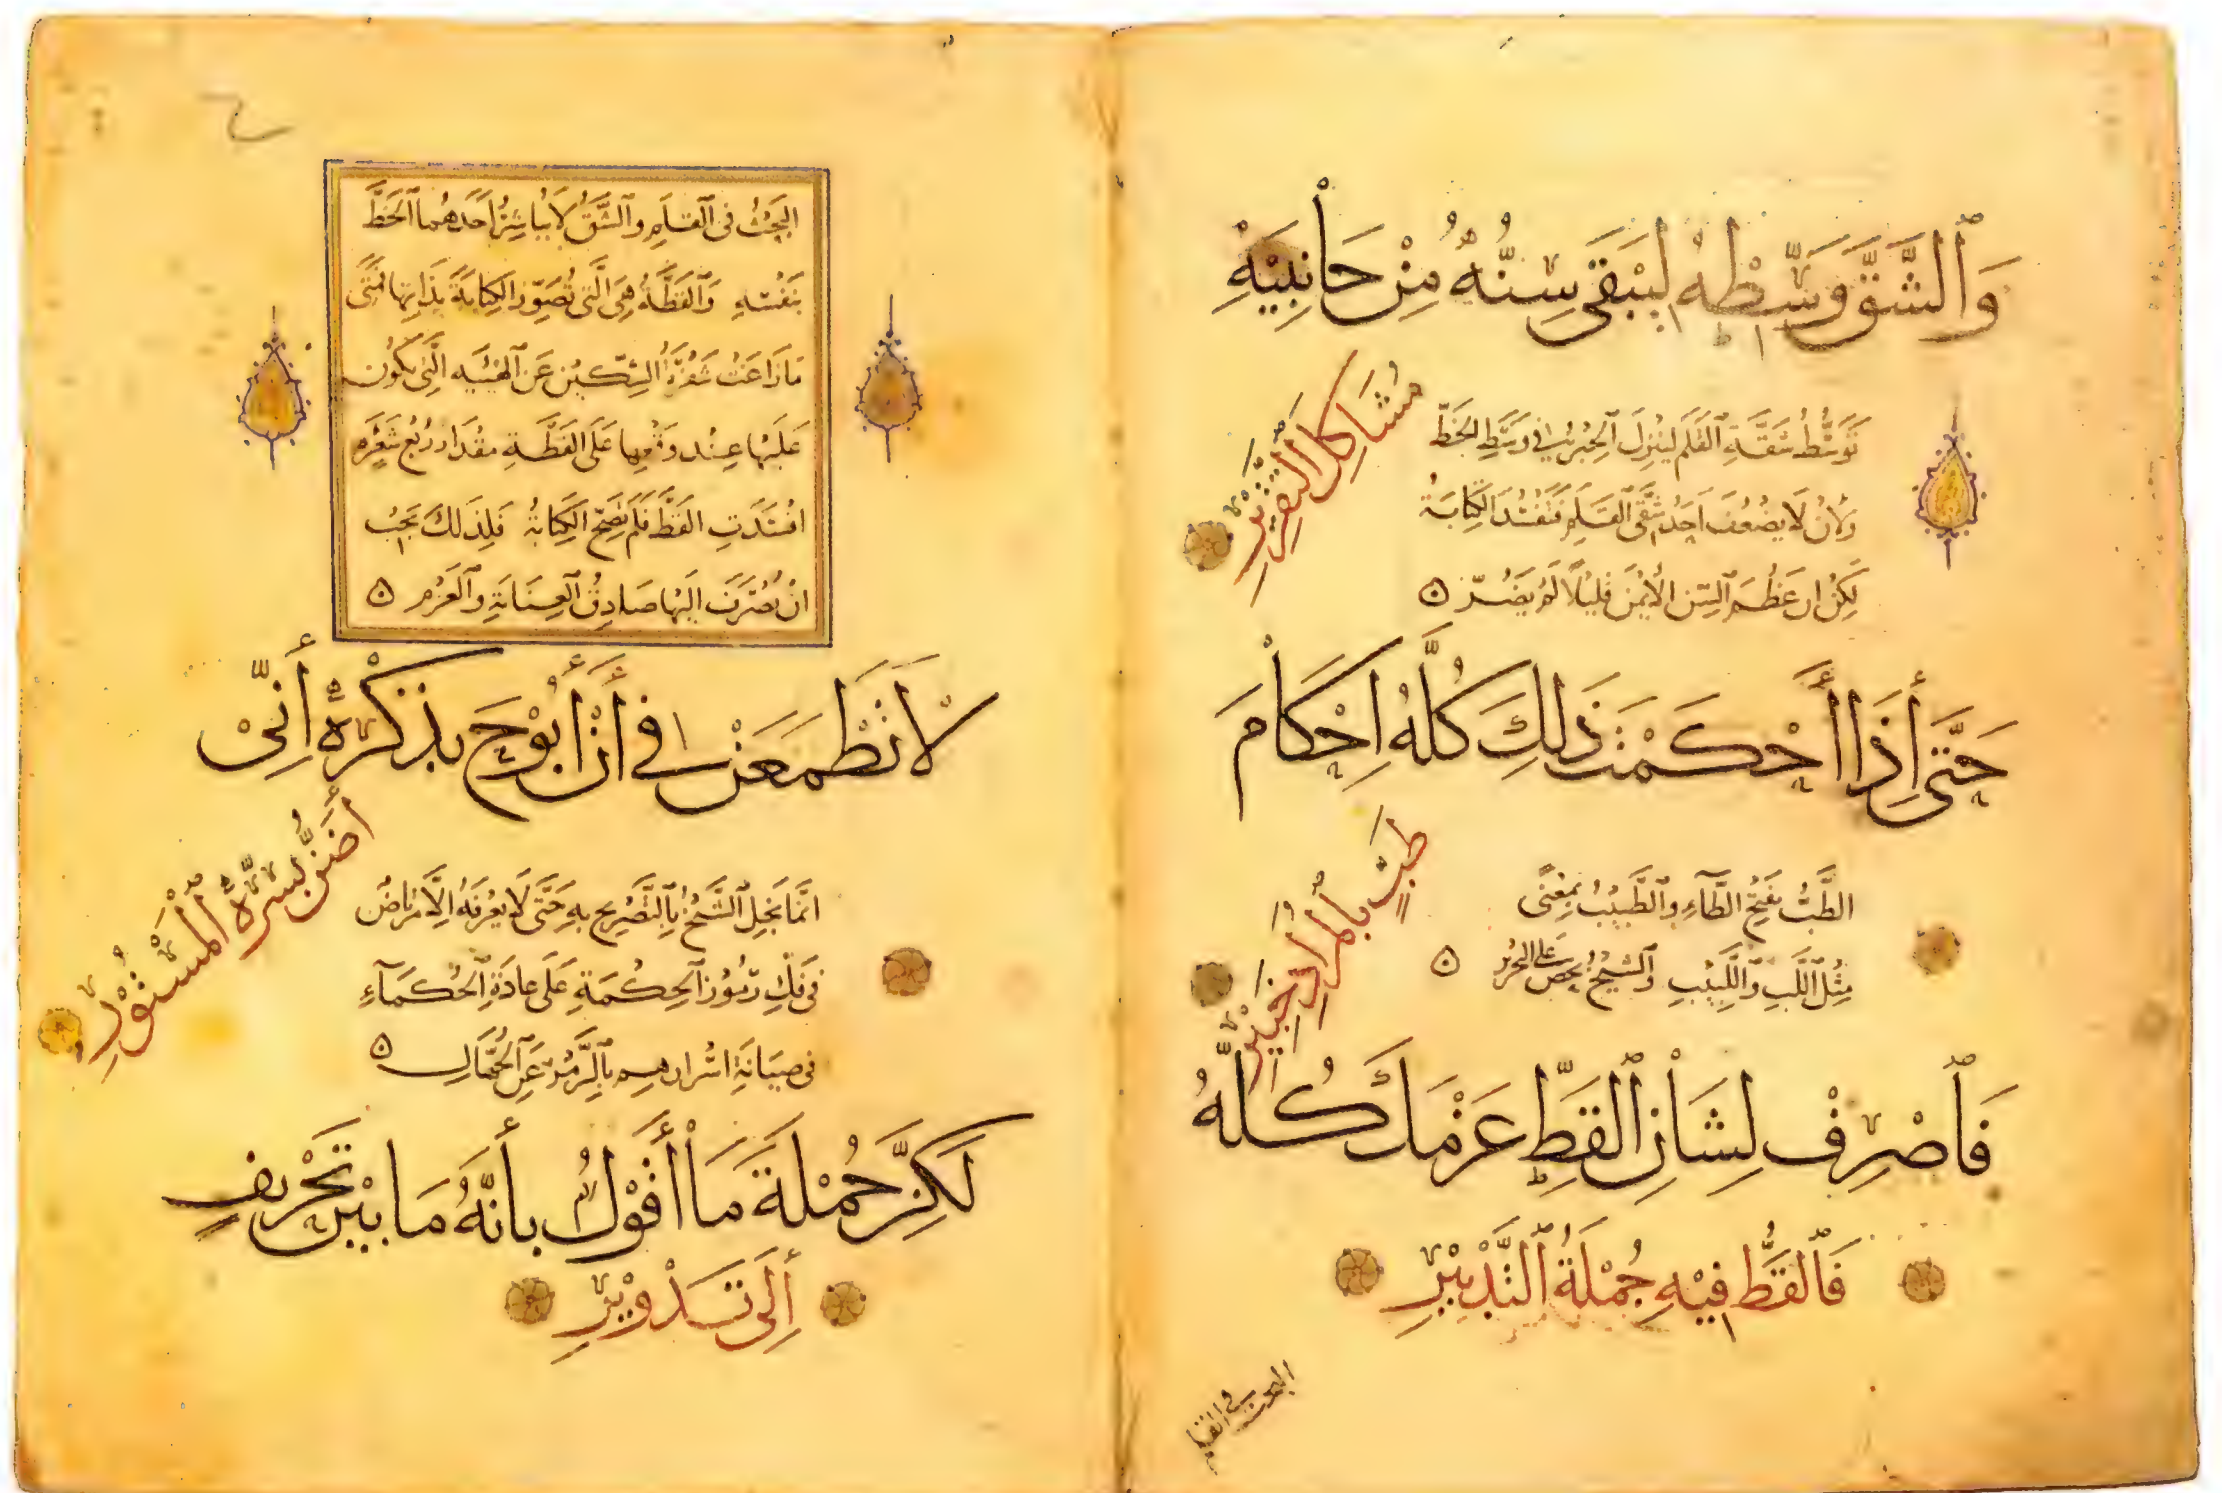 وَٱلشَّقَّ وَسِّطْهُ لِيَبْقَى سِنُّهُ مِنْ جَانِبَيْهِ
مُشَاكِلَ التَّقْدِيرِ
تَوَسُّطُ شَقَّةِ القَلَمِ لِيَنْزِلَ الحِبْرُ فِي وَسَطِ الخَطِّ
وَلِأَنْ لَا يَضْعُفَ أَحَدُ شِقَّيِ القَلَمِ فَتَفْسُدَ الكِتَابَةُ
لَكِنْ إِنْ عَظُمَ السِّنُّ الأَيْمَنُ قَلِيلًا لَمْ يَضُرَّ ۝
حَتَّى إِذَا أَحْكَمْتَ ذَلِكَ كُلَّهُ إِحْكَامَ
طَبٍّ بِالمُرَادِ خَبِيرِ
الطَّبُّ بِفَتْحِ الطَّاءِ وَالطَّبِيبُ بِمَعْنًى
مِثْلُ اللَّبِّ وَاللَّبِيبِ وَالشَّيْخُ يَحُضُّ عَلَى
فَاصْرِفْ لِشَأْنِ القَطِّ عَزْمَكَ كُلَّهُ
فَالقَطُّ فِيهِ جُمْلَةُ التَّدْبِيرِ
البحث في القلم
البَحْثُ فِي القَلَمِ وَالشَّقِّ لَا يُبَاشِرُ أَحَدُهُمَا الخَطَّ
بِنَفْسِهِ وَالقَطَّةُ هِيَ الَّتِي تُصَوِّرُ الكِتَابَةَ بِذَاتِهَا فَمَتَى
مَا زَاغَتْ شَفْرَةُ السِّكِّينِ عَنِ الهَيْئَةِ الَّتِي يَكُونُ
عَلَيْهَا عِنْدَ وَضْعِهَا عَلَى القَطَّةِ مِقْدَارَ رُبْعِ شَعْرَةٍ
فَسَدَتِ القَطَّةُ فَلَمْ تَصِحَّ الكِتَابَةُ فَلِذَلِكَ يَجِبُ
أَنْ يُصْرَفَ إِلَيْهَا صَادِقُ العِنَايَةِ وَالعَزْمِ ۝
لَا تَطْمَعَنْ فِي أَنْ أَبُوحَ بِذِكْرِهِ إِنِّي
أَضِنُّ بِسِرِّهِ المَسْتُورِ
إِنَّمَا بَخِلَ الشَّيْخُ بِالتَّصْرِيحِ بِهِ حَتَّى لَا يَعْرِفَهُ إِلَّا مُرْتَاضٌ
فِي فَكِّ رُمُوزِ الحِكْمَةِ عَلَى عَادَةِ الحُكَمَاءِ
فِي صِيَانَةِ أَسْرَارِهِمْ بِالرَّمْزِ عَنِ الجُهَّالِ ۝
لَكِنَّ جُمْلَةَ مَا أَقُولُ بِأَنَّهُ مَا بَيْنَ تَحْرِيفٍ
إِلَى تَدْوِيرِ